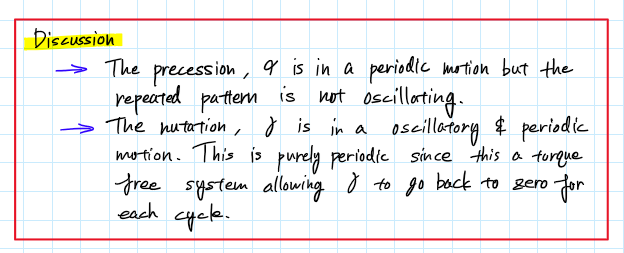 Discussion
→ The precession, φ is in a periodic motion but the
repeated pattern is not oscillating.
→ The nutation, γ is in a oscillatory & periodic
motion. This is purely periodic since this a torque
free system allowing γ to go back to zero for
each cycle.